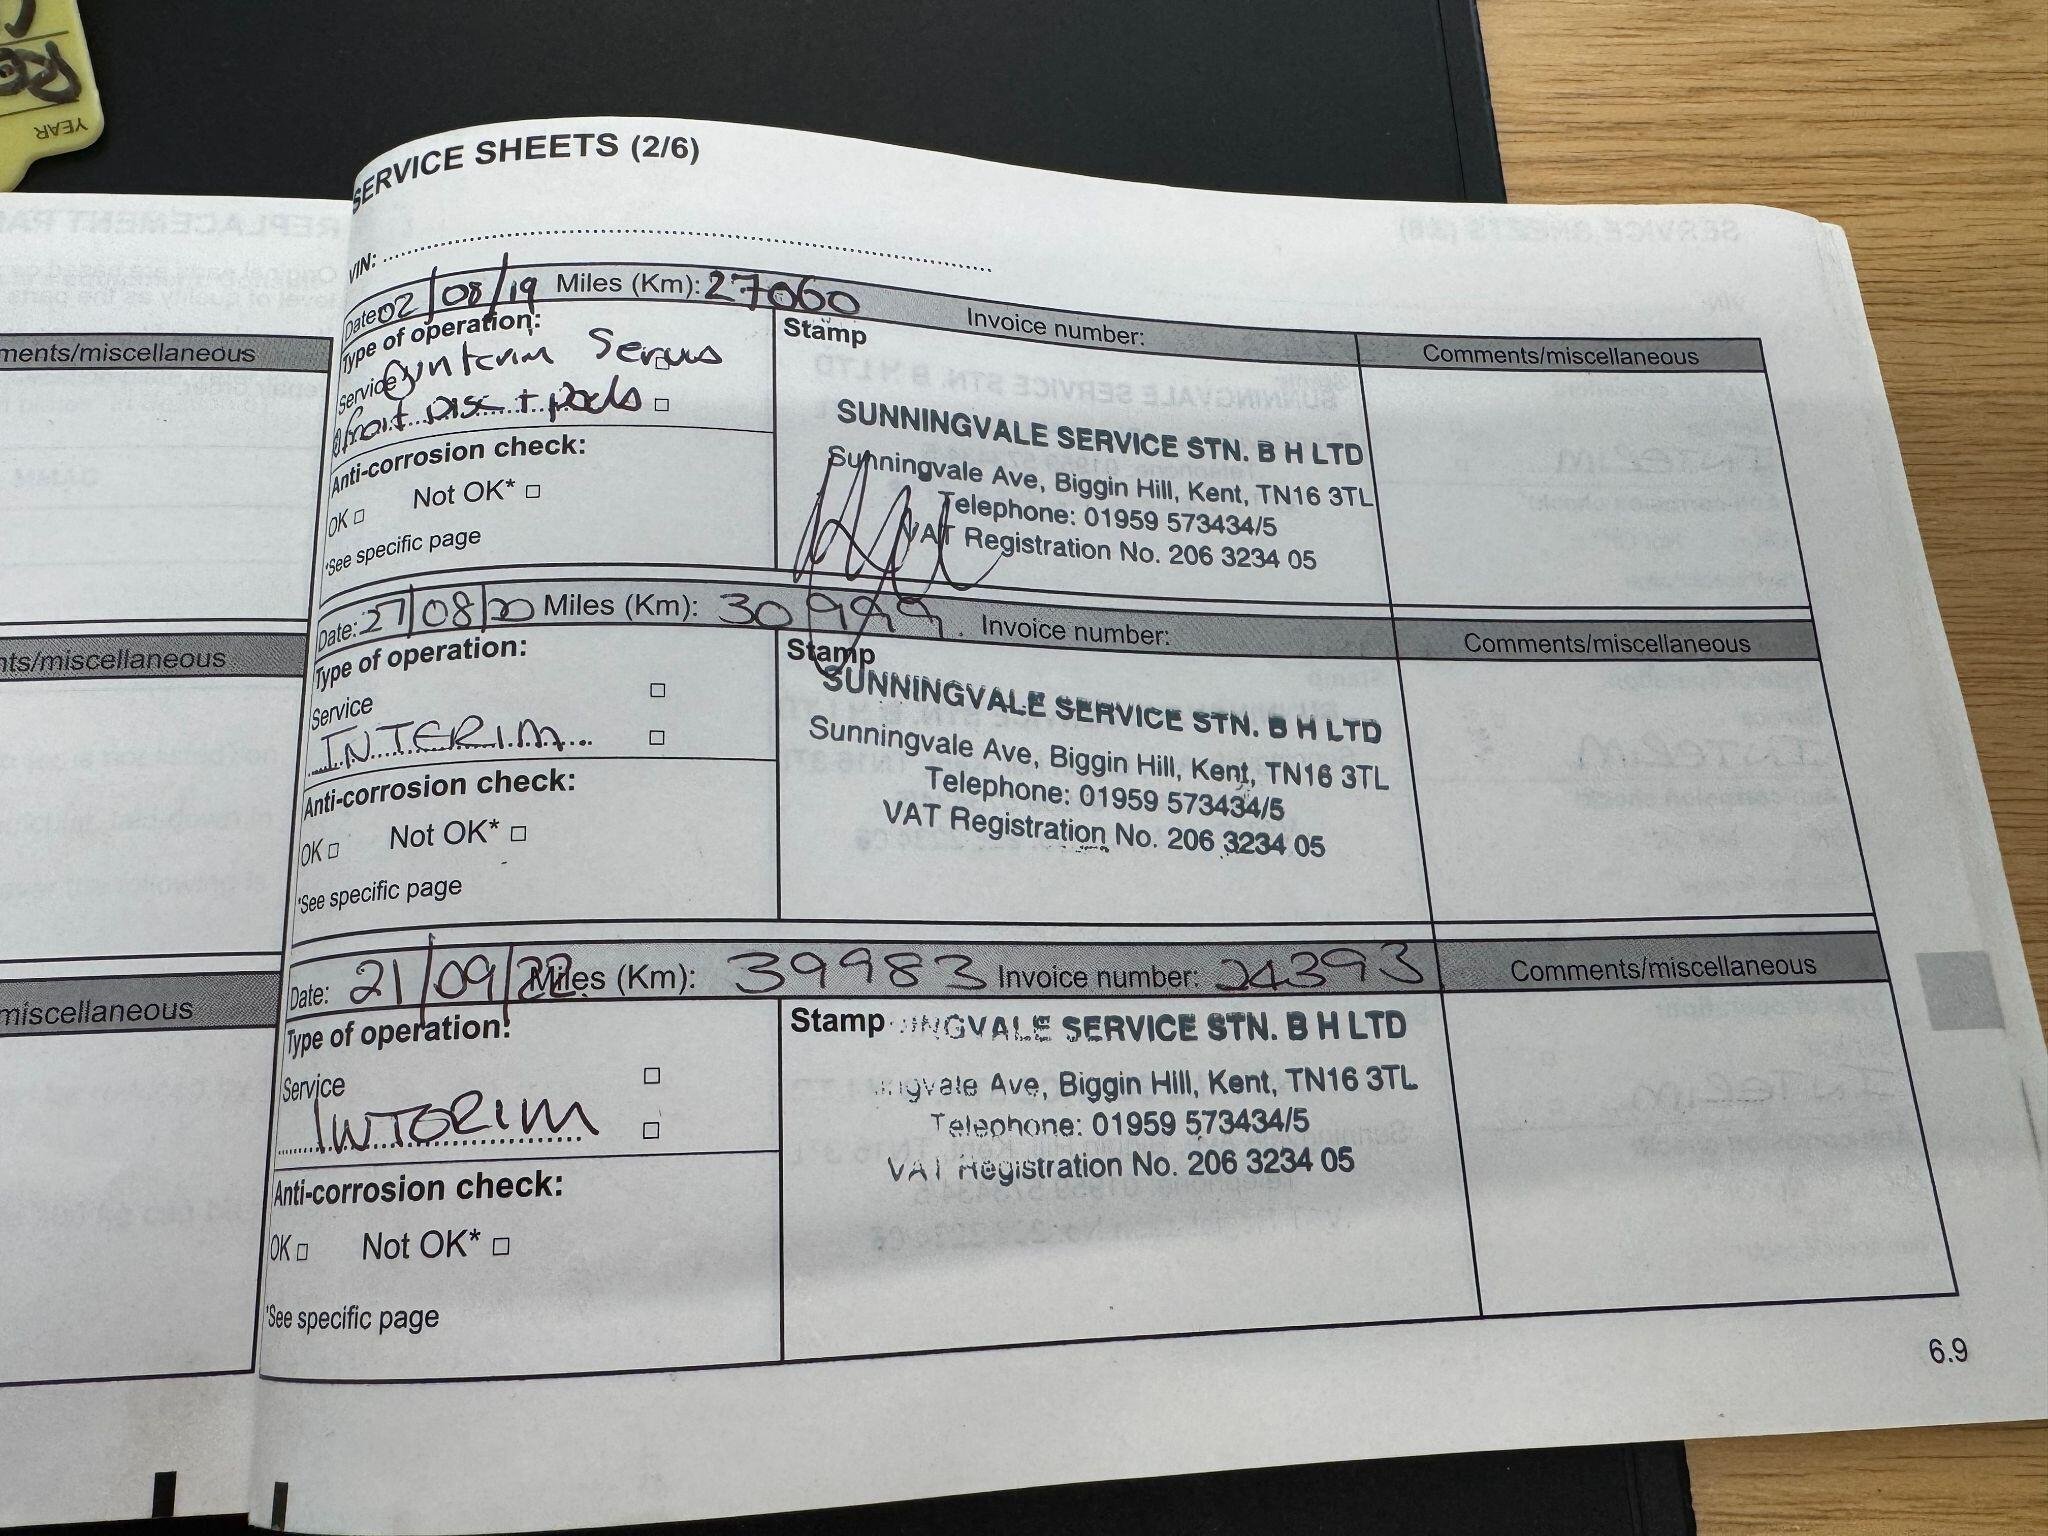 YEAR
SERVICE SHEETS (2/6)
VIN:
Date: 02/08/19 Miles (Km): 27060 Invoice number:
Comments/miscellaneous
Type of operation:
Service Interim Servus
front Disc + pads
Stamp
SUNNINGVALE SERVICE STN. B H LTD
Sunningvale Ave, Biggin Hill, Kent, TN16 3TL
Telephone: 01959 573434/5
VAT Registration No. 206 3234 05
Anti-corrosion check:
OK Not OK*
*See specific page
Date: 27/08/20 Miles (Km): 30999 Invoice number:
Comments/miscellaneous
Type of operation:
Service
INTERIM
Stamp
SUNNINGVALE SERVICE STN. B H LTD
Sunningvale Ave, Biggin Hill, Kent, TN16 3TL
Telephone: 01959 573434/5
VAT Registration No. 206 3234 05
Anti-corrosion check:
OK Not OK*
*See specific page
Date: 21/09/22 Miles (Km): 39983 Invoice number: 24393
Comments/miscellaneous
Type of operation:
Service
INTERIM
Stamp
INGVALE SERVICE STN. B H LTD
ingvale Ave, Biggin Hill, Kent, TN16 3TL
Telephone: 01959 573434/5
VAT Registration No. 206 3234 05
Anti-corrosion check:
OK Not OK*
*See specific page
6.9
ments/miscellaneous
nts/miscellaneous
miscellaneous